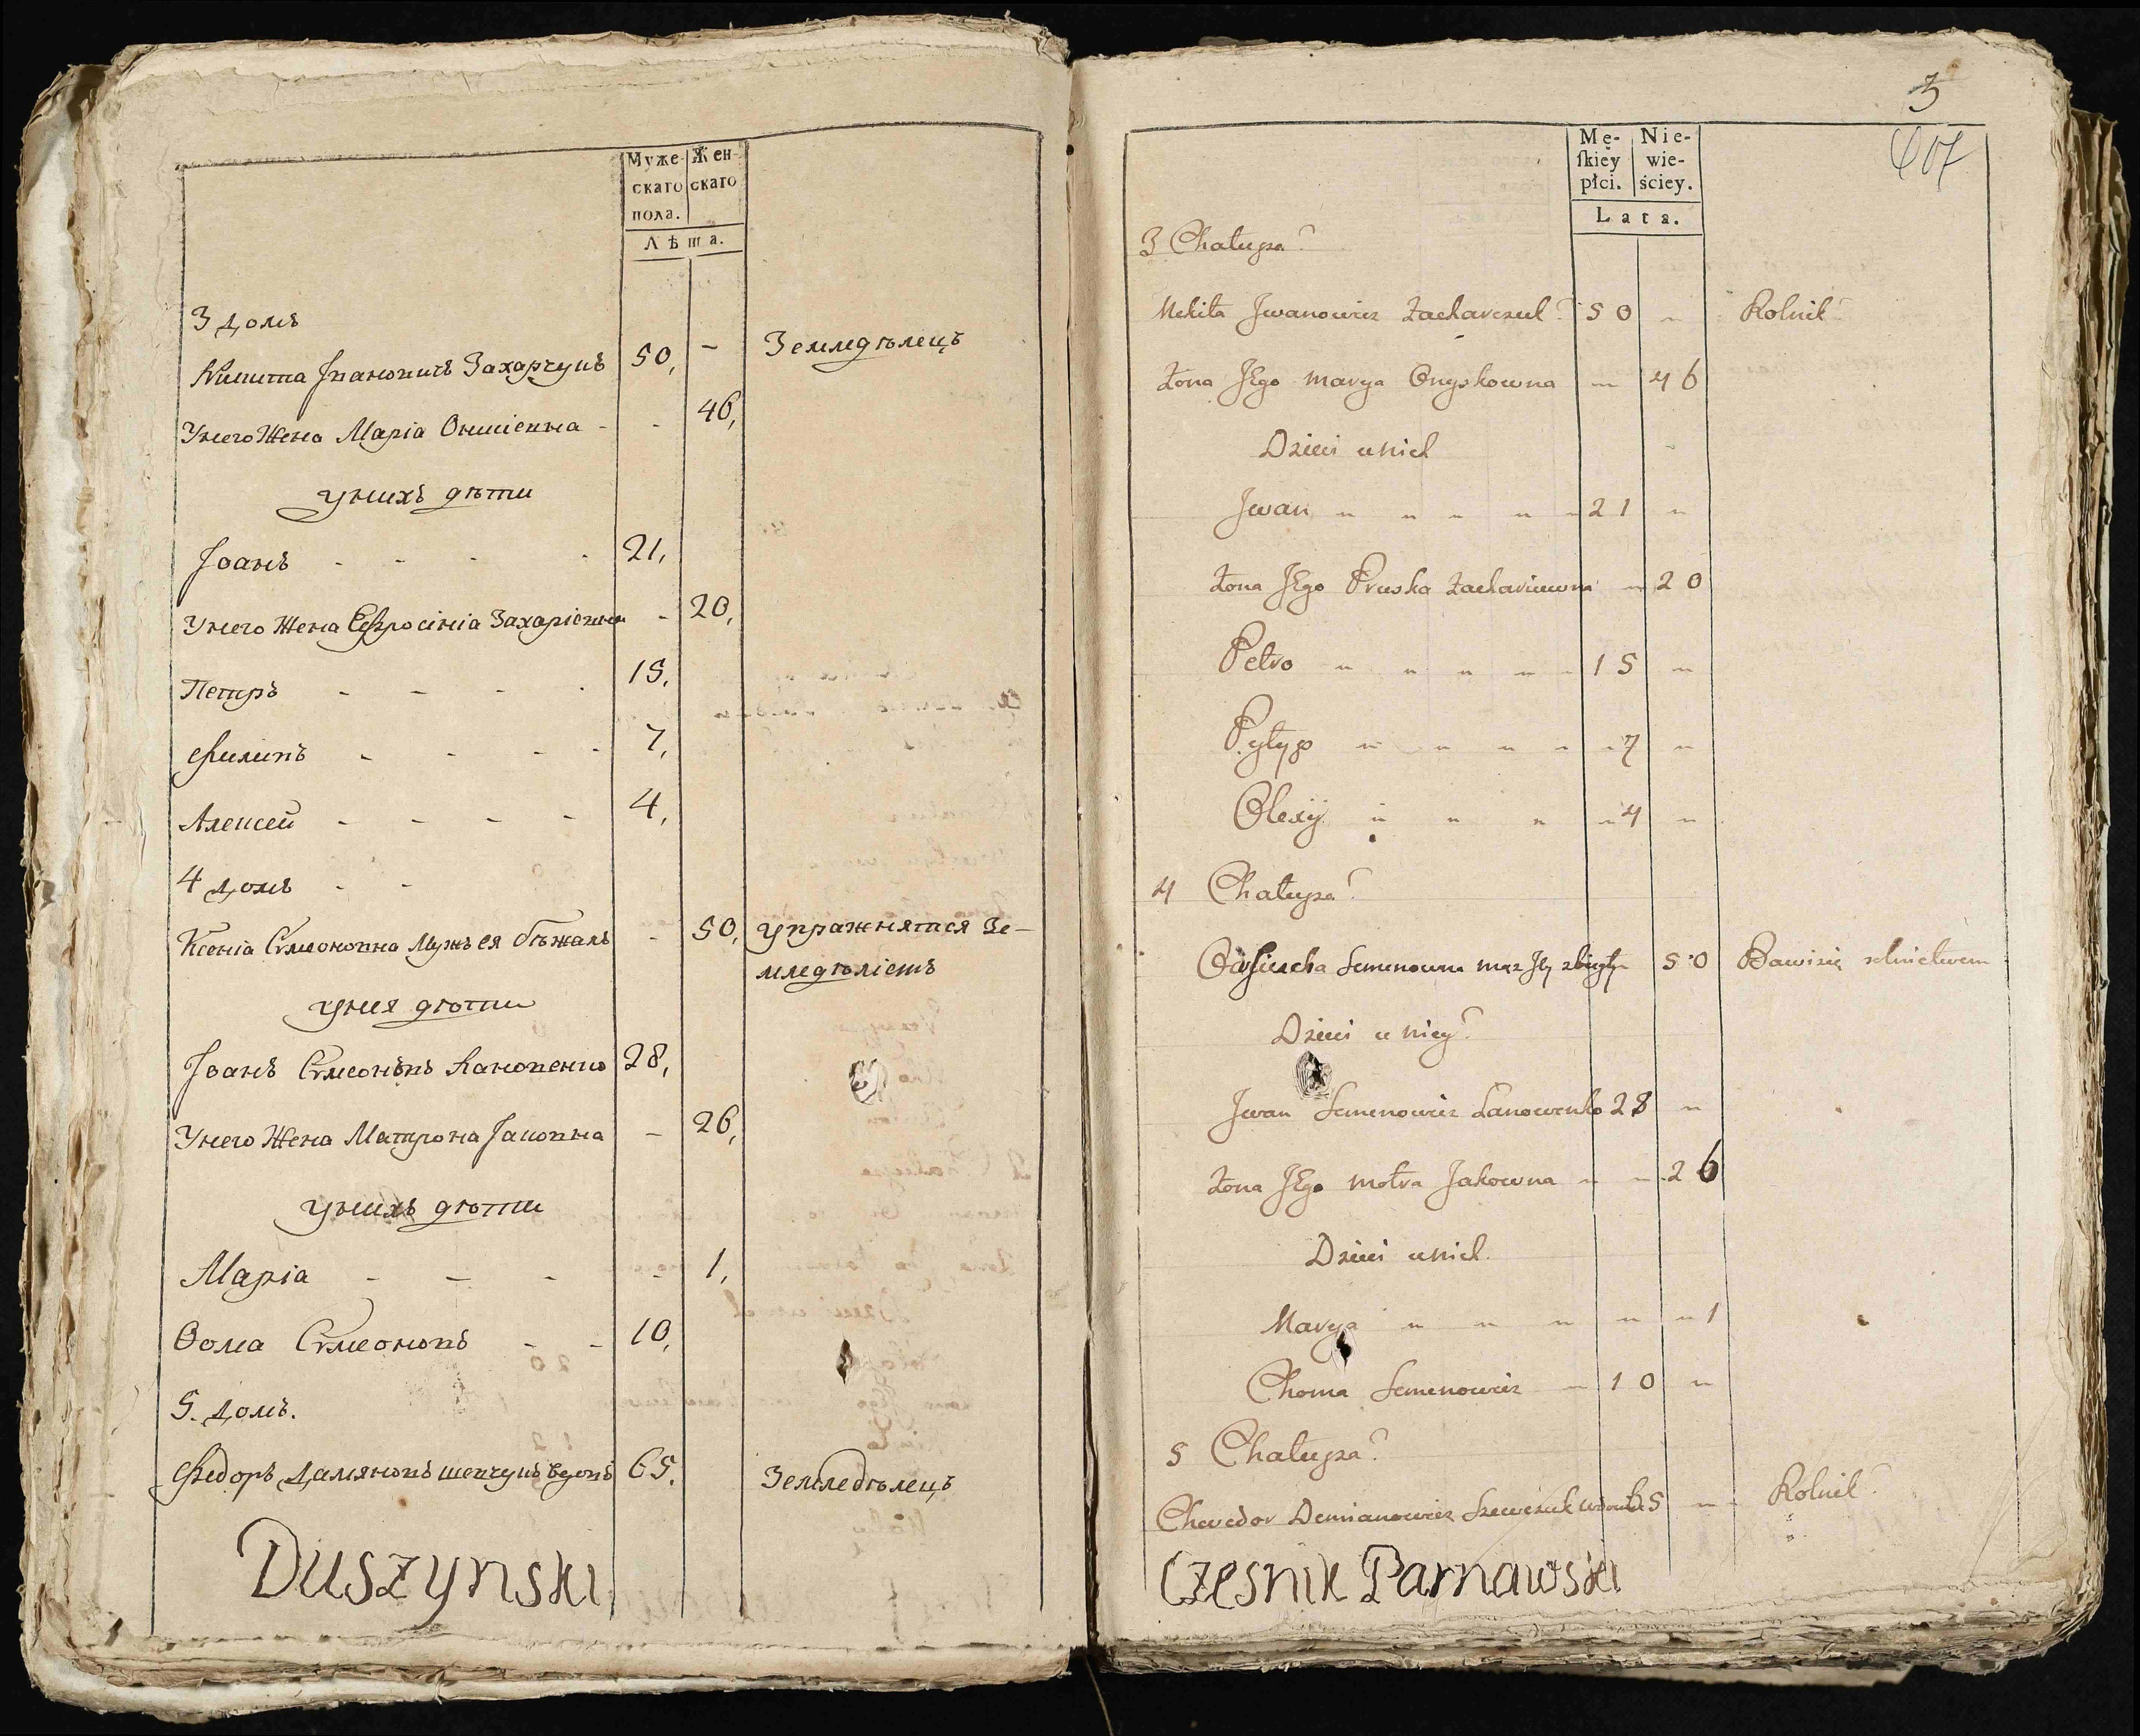 Муже-
скаго
пола.
Жен-
скаго
Лѣта.
3 домъ
Никита Івановичъ Захарчукъ 50, - Земледѣлецъ
У него Жена Маріа - - 46,
У нихъ дѣти
Іоанъ - - - - 21,
У него Жена Евфросініа Захаріевна - 20,
Петръ - - - - 15,
Филипъ - - - - 7,
Алексей - - - - 4,
4 домъ - -
Ксеніа Сѵмеоновна Мужъ ея бѣжалъ - 50, упражнятся Зе-
мледѣліемъ
У нея дѣти
Іоанъ Сѵмеоновъ Лановенко 28,
У него Жена Матрона Іаковна - 26,
У нихъ дѣти
Маріа - - - - 1,
Ѳома Сѵмеоновъ - - 10,
5. домъ.
Федоръ Дамяновъ шевчукъ вдовъ 65. Земледѣлецъ
Duszynski
3
607
Mę-
ſkiey
płci.
Nie-
wie-
ściey.
Lata.
3 Chałupa
Mekita Jwanowicz Zacharczuk 50 " Rolnik
Żona JEgo Marya Onyskowna " 46
Dzieci u nich
Jwan " " " " " 21 "
Żona JEgo Pruska Zachariewna " 20
Petro " " " " " 15 "
Pyłyp " " " " " 7 "
Olexij " " " " 4 "
4 Chałupa
Semenowna mąż Jey zbiegły 50 Bawi się rolnictwem
Dzieci u niey
Jwan Semenowicz Lanowenko 28 "
Żona JEgo Motra Jakowna " " 26
Dzieci u nich
Marya " " " " " 1
Choma Semenowicz " 10 "
5 Chałupa
Chwedor Demianowicz Szewczuk wdowiec 65 " Rolnik
Czesnik Parnawski